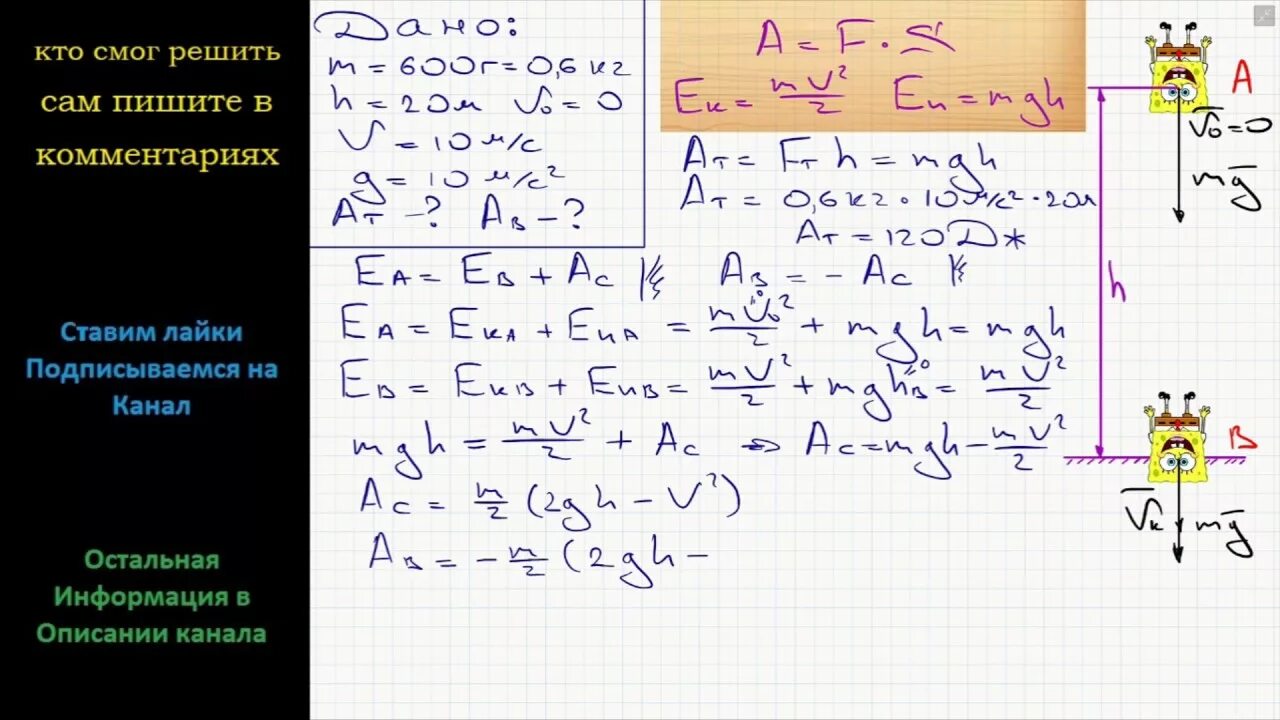 кто смог решить
сам пишите в
комментариях
Ставим лайки
Подписываемся на
Канал
Остальная
Информация в
Описании канала
Дано:
m = 600г = 0,6 кг
h = 20м V₀ = 0
V = 10 м/с
g = 10 м/с²
Aт - ? Aв - ?
A = F · S
Eк = mV²/2 Eп = mgh
Aт = Fт h = mgh
Aт = 0,6кг · 10м/с² · 20м
Aт = 120Дж
EA = EB + Ac Aв = - Ac
EA = EкA + EпA = mV₀²/2 + mgh = mgh
EB = EкB + EпB = mV²/2 + mghB = mV²/2
mgh = mV²/2 + Ac ⇒ Ac = mgh - mV²/2
Ac = m/2 (2gh - V²)
Aв = - m/2 (2gh -
A
V̄₀ = 0
mḡ
h
B
V̄к
mḡ